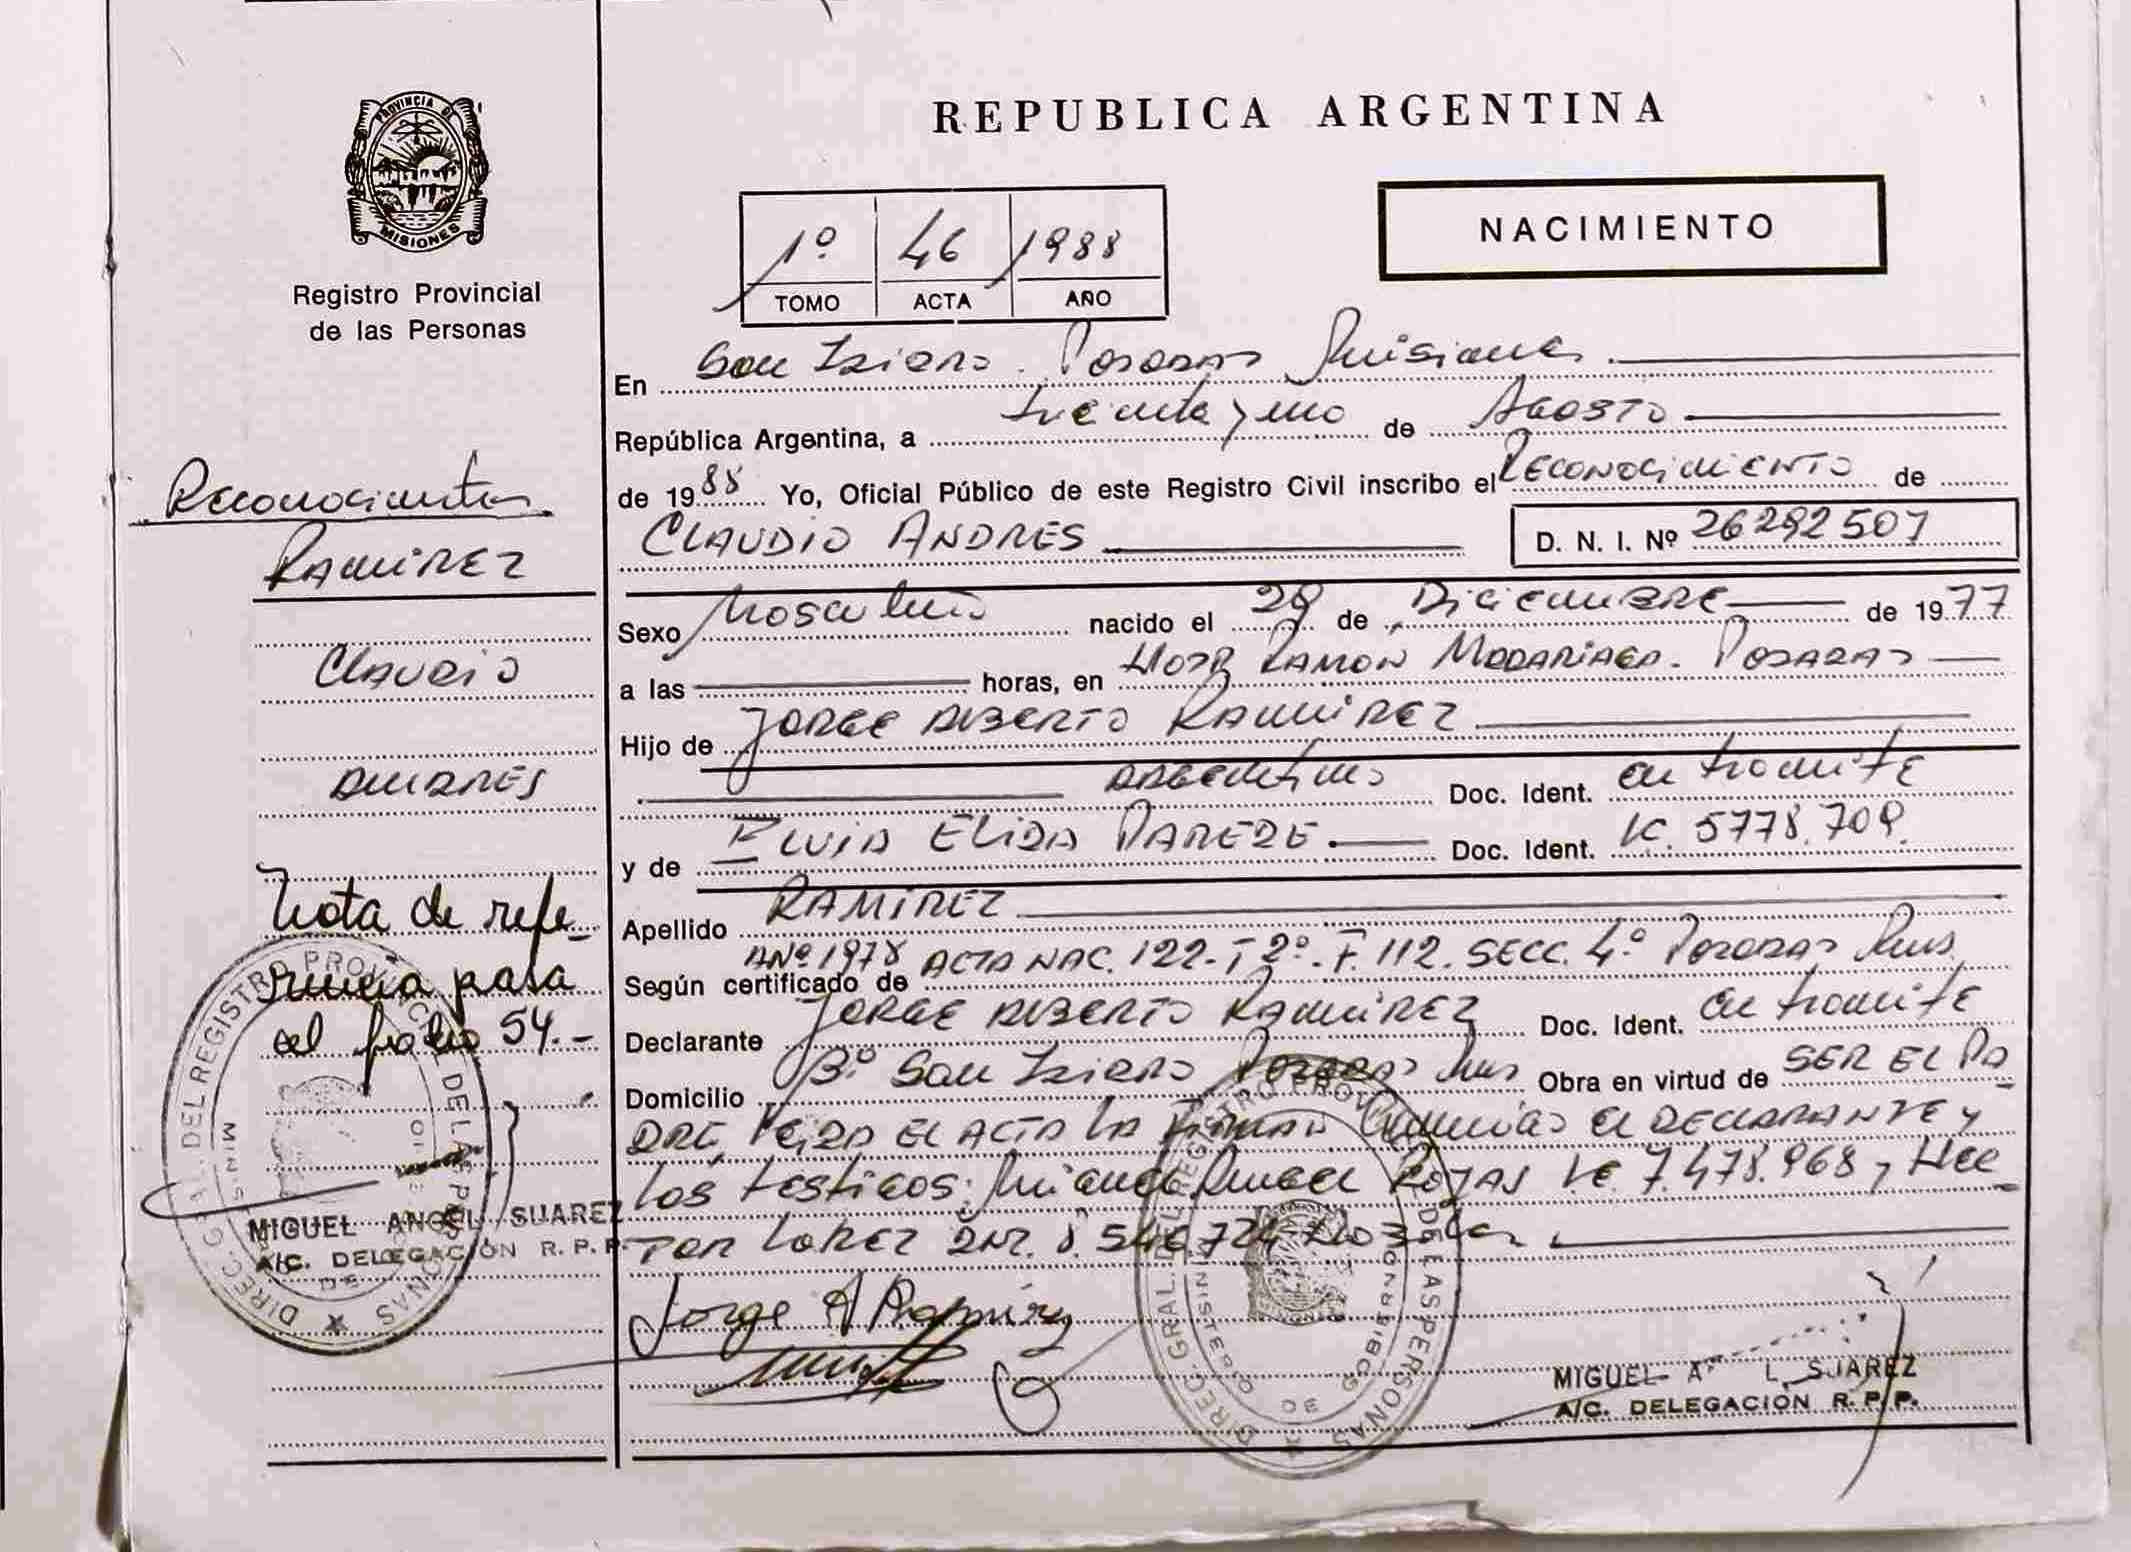 PROVINCIA DE
MISIONES
Registro Provincial
de las Personas
Reconocimiento
RAMIREZ
CLAUDIO
ANDRES
Nota de refe-
rencia para
el folio 54.-
MIGUEL ANGEL SUAREZ
A/C. DELEGACIÓN R. P. P.
REPUBLICA ARGENTINA
1º 46 1988
TOMO ACTA AÑO
NACIMIENTO
En San Isidro. Posadas Misiones.
República Argentina, a treinta y uno de Agosto
de 1988 Yo, Oficial Público de este Registro Civil inscribo el RECONOCIMIENTO de
CLAUDIO ANDRES D. N. I. Nº 26292507
Sexo Masculino nacido el 29 de Diciembre de 1977
a las horas, en HOSP. RAMON MADARIAGA. POSADAS
Hijo de JORGE ALBERTO RAMIREZ
ARGENTINO Doc. Ident. en tramite
y de ELIDA PAREDE. Doc. Ident. 5778.709.
Apellido RAMIREZ
Según certificado de AÑO 1978 ACTA NAC. 122. T 2º. F. 112. SECC. 4º POSADAS Mis.
Declarante JORGE ALBERTO RAMIREZ Doc. Ident. en tramite
Domicilio Bº San Isidro Posadas Mis Obra en virtud de SER EL PA
DRE, LEIDA EL ACTA LA FIRMAN el DECLARANTE y
los testigos: ROJAS 7.478.968, HEC
TOR LOPEZ DNI. 8.546.724
Jorge A Ramirez
MIGUEL A L SUAREZ
A/C. DELEGACIÓN R. P. P.
DIREC. GRAL. DEL REGISTRO PROVINCIAL DE LAS PERSONAS
DIREC. GRAL. DEL REGISTRO PROVINCIAL DE LAS PERSONAS